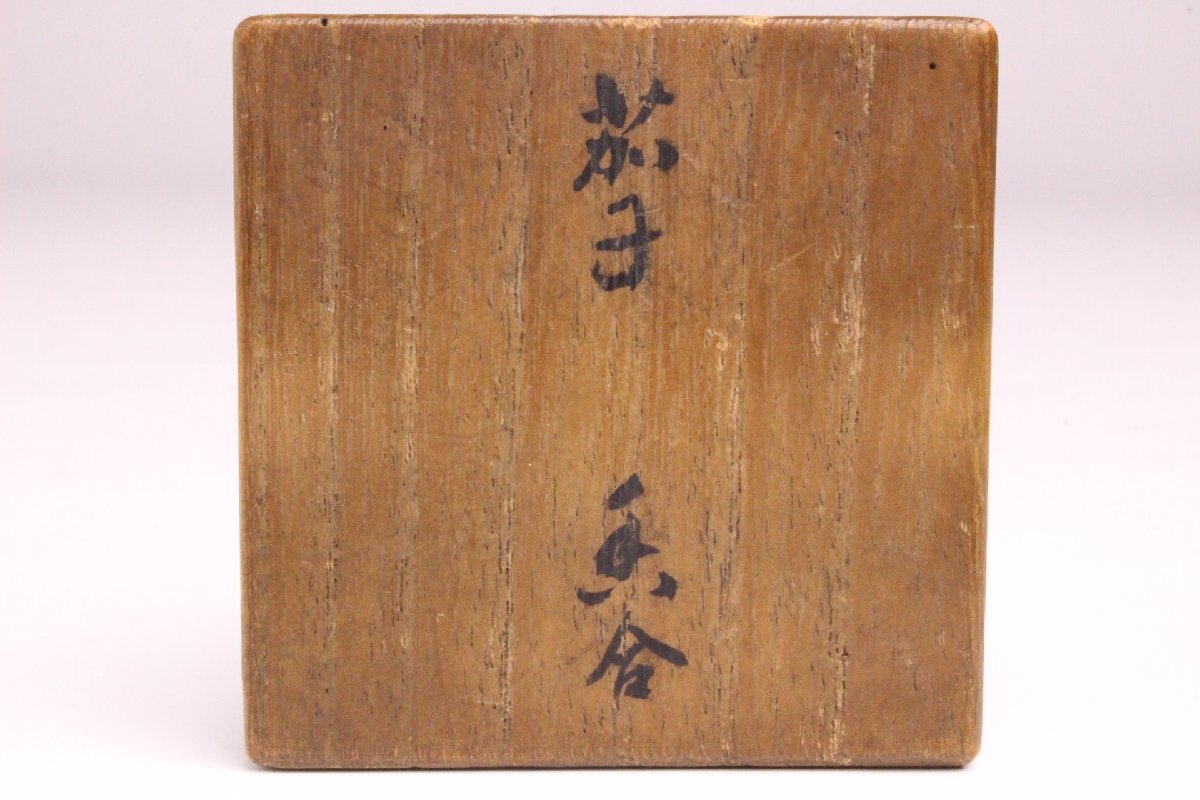 茄子
香合